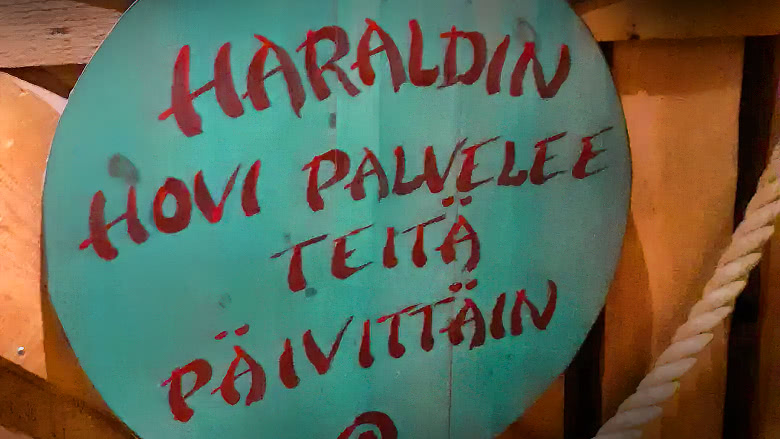 HARALDIN
HOVI PALVELEE
TEITÄ
PÄIVITTÄIN